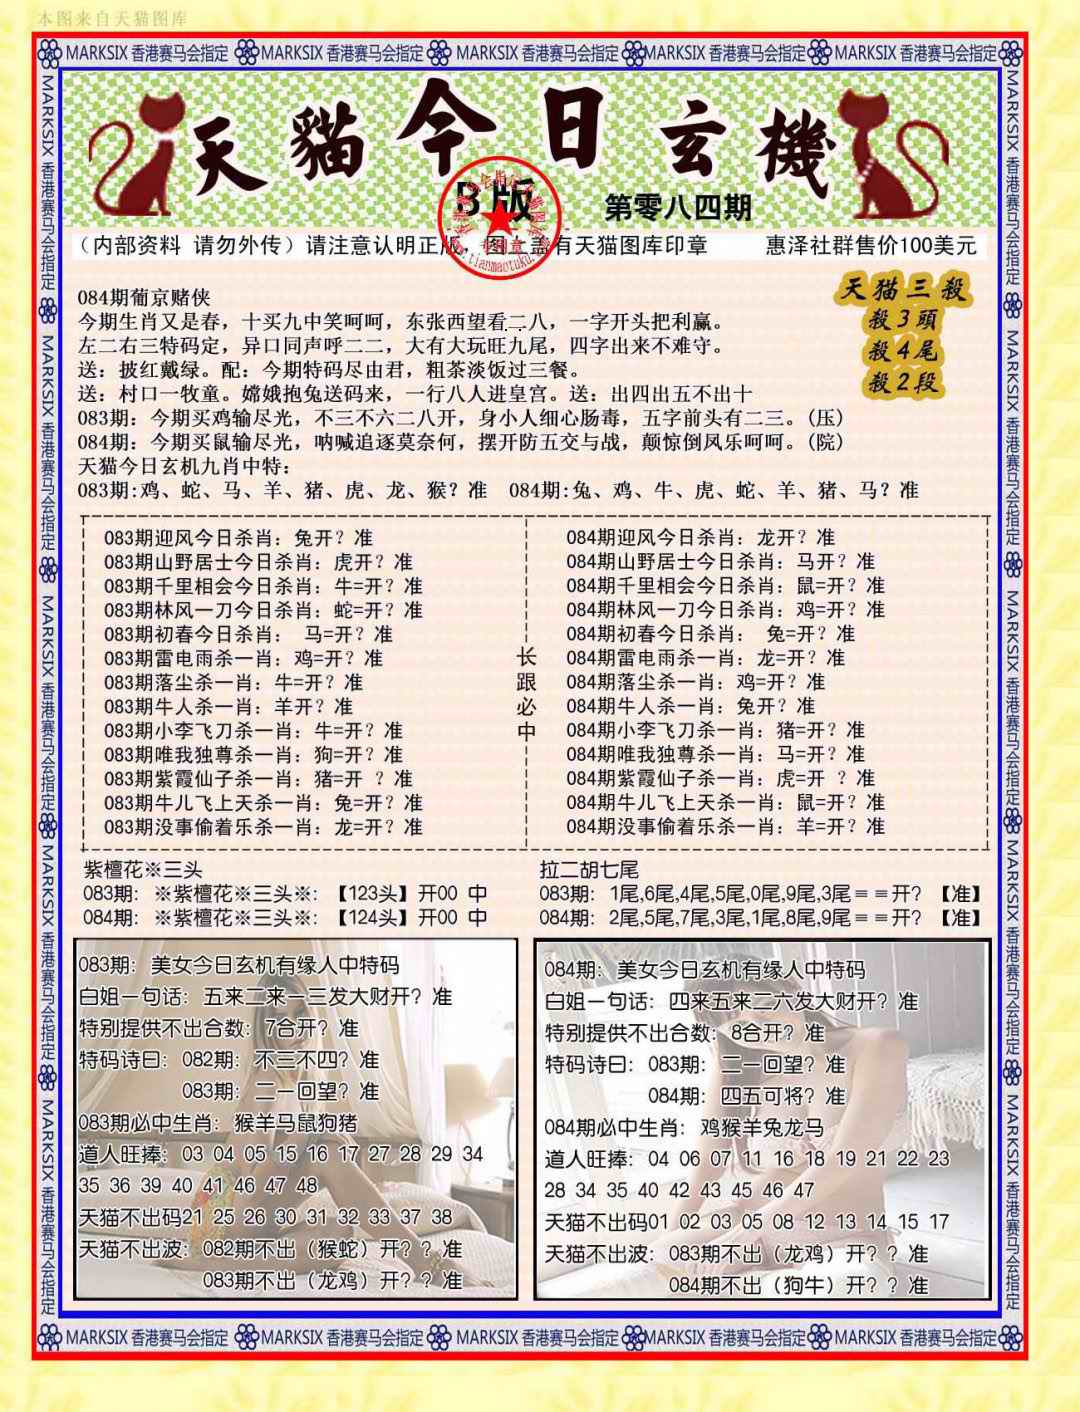 本图来自天猫图库
MARKSIX 香港赛马会指定 MARKSIX 香港赛马会指定 MARKSIX 香港赛马会指定 MARKSIX 香港赛马会指定 MARKSIX 香港赛马会指定
天貓今日玄機
B版
第零八四期
（内部资料 请勿外传）请注意认明正版，图上盖有天猫图库印章 惠泽社群售价100美元
天猫三殺
殺3頭
殺4尾
殺2段
084期葡京赌侠
今期生肖又是春，十买九中笑呵呵，东张西望看二八，一字开头把利赢。
左二右三特码定，异口同声呼二二，大有大玩旺九尾，四字出来不难守。
送：披红戴绿。配：今期特码尽由君，粗茶淡饭过三餐。
送：村口一牧童。嫦娥抱兔送码来，一行八人进皇宫。送：出四出五不出十
083期：今期买鸡输尽光，不三不六二八开，身小人细心肠毒，五字前头有二三。(压)
084期：今期买鼠输尽光，呐喊追逐莫奈何，摆开防五交与战，颠惊倒凤乐呵呵。(院)
天猫今日玄机九肖中特：
083期:鸡、蛇、马、羊、猪、虎、龙、猴？准 084期:兔、鸡、牛、虎、蛇、羊、猪、马？准
083期迎风今日杀肖：兔开？准
083期山野居士今日杀肖：虎开？准
083期千里相会今日杀肖：牛=开？准
083期林风一刀今日杀肖：蛇=开？准
083期初春今日杀肖： 马=开？准
083期雷电雨杀一肖：鸡=开？准
083期落尘杀一肖：牛=开？准
083期牛人杀一肖：羊开？准
083期小李飞刀杀一肖：牛=开？准
083期唯我独尊杀一肖：狗=开？准
083期紫霞仙子杀一肖：猪=开 ？准
083期牛儿飞上天杀一肖：兔=开？准
083期没事偷着乐杀一肖：龙=开？准
长跟必中
084期迎风今日杀肖：龙开？准
084期山野居士今日杀肖：马开？准
084期千里相会今日杀肖：鼠=开？准
084期林风一刀今日杀肖：鸡=开？准
084期初春今日杀肖： 兔=开？准
084期雷电雨杀一肖：龙=开？准
084期落尘杀一肖：鸡=开？准
084期牛人杀一肖：兔开？准
084期小李飞刀杀一肖：猪=开？准
084期唯我独尊杀一肖：马=开？准
084期紫霞仙子杀一肖：虎=开 ？准
084期牛儿飞上天杀一肖：鼠=开？准
084期没事偷着乐杀一肖：羊=开？准
紫檀花※三头
083期：※紫檀花※三头※：【123头】开00 中
084期：※紫檀花※三头※：【124头】开00 中
拉二胡七尾
083期：1尾,6尾,4尾,5尾,0尾,9尾,3尾＝＝开？【准】
084期：2尾,5尾,7尾,3尾,1尾,8尾,9尾＝＝开？【准】
083期：美女今日玄机有缘人中特码
白姐一句话：五来二来一三发大财开？准
特别提供不出合数：7合开？准
特码诗曰：082期：不三不四？准
083期：二一回望？准
083期必中生肖：猴羊马鼠狗猪
道人旺捧：03 04 05 15 16 17 27 28 29 34
35 36 39 40 41 46 47 48
天猫不出码21 25 26 30 31 32 33 37 38
天猫不出波：082期不出（猴蛇）开？？准
083期不出（龙鸡）开？？准
084期：美女今日玄机有缘人中特码
白姐一句话：四来五来二六发大财开？准
特别提供不出合数：8合开？准
特码诗曰：083期：二一回望？准
084期：四五可将？准
084期必中生肖：鸡猴羊兔龙马
道人旺捧：04 06 07 11 16 18 19 21 22 23
28 34 35 40 42 43 45 46 47
天猫不出码01 02 03 05 08 12 13 14 15 17
天猫不出波：083期不出（龙鸡）开？？准
084期不出（狗牛）开？？准
MARKSIX 香港赛马会指定 MARKSIX 香港赛马会指定 MARKSIX 香港赛马会指定 MARKSIX 香港赛马会指定 MARKSIX 香港赛马会指定
MARKSIX 香港赛马会指定 MARKSIX 香港赛马会指定 MARKSIX 香港赛马会指定 MARKSIX 香港赛马会指定 MARKSIX 香港赛马会指定
MARKSIX 香港赛马会指定 MARKSIX 香港赛马会指定 MARKSIX 香港赛马会指定 MARKSIX 香港赛马会指定 MARKSIX 香港赛马会指定